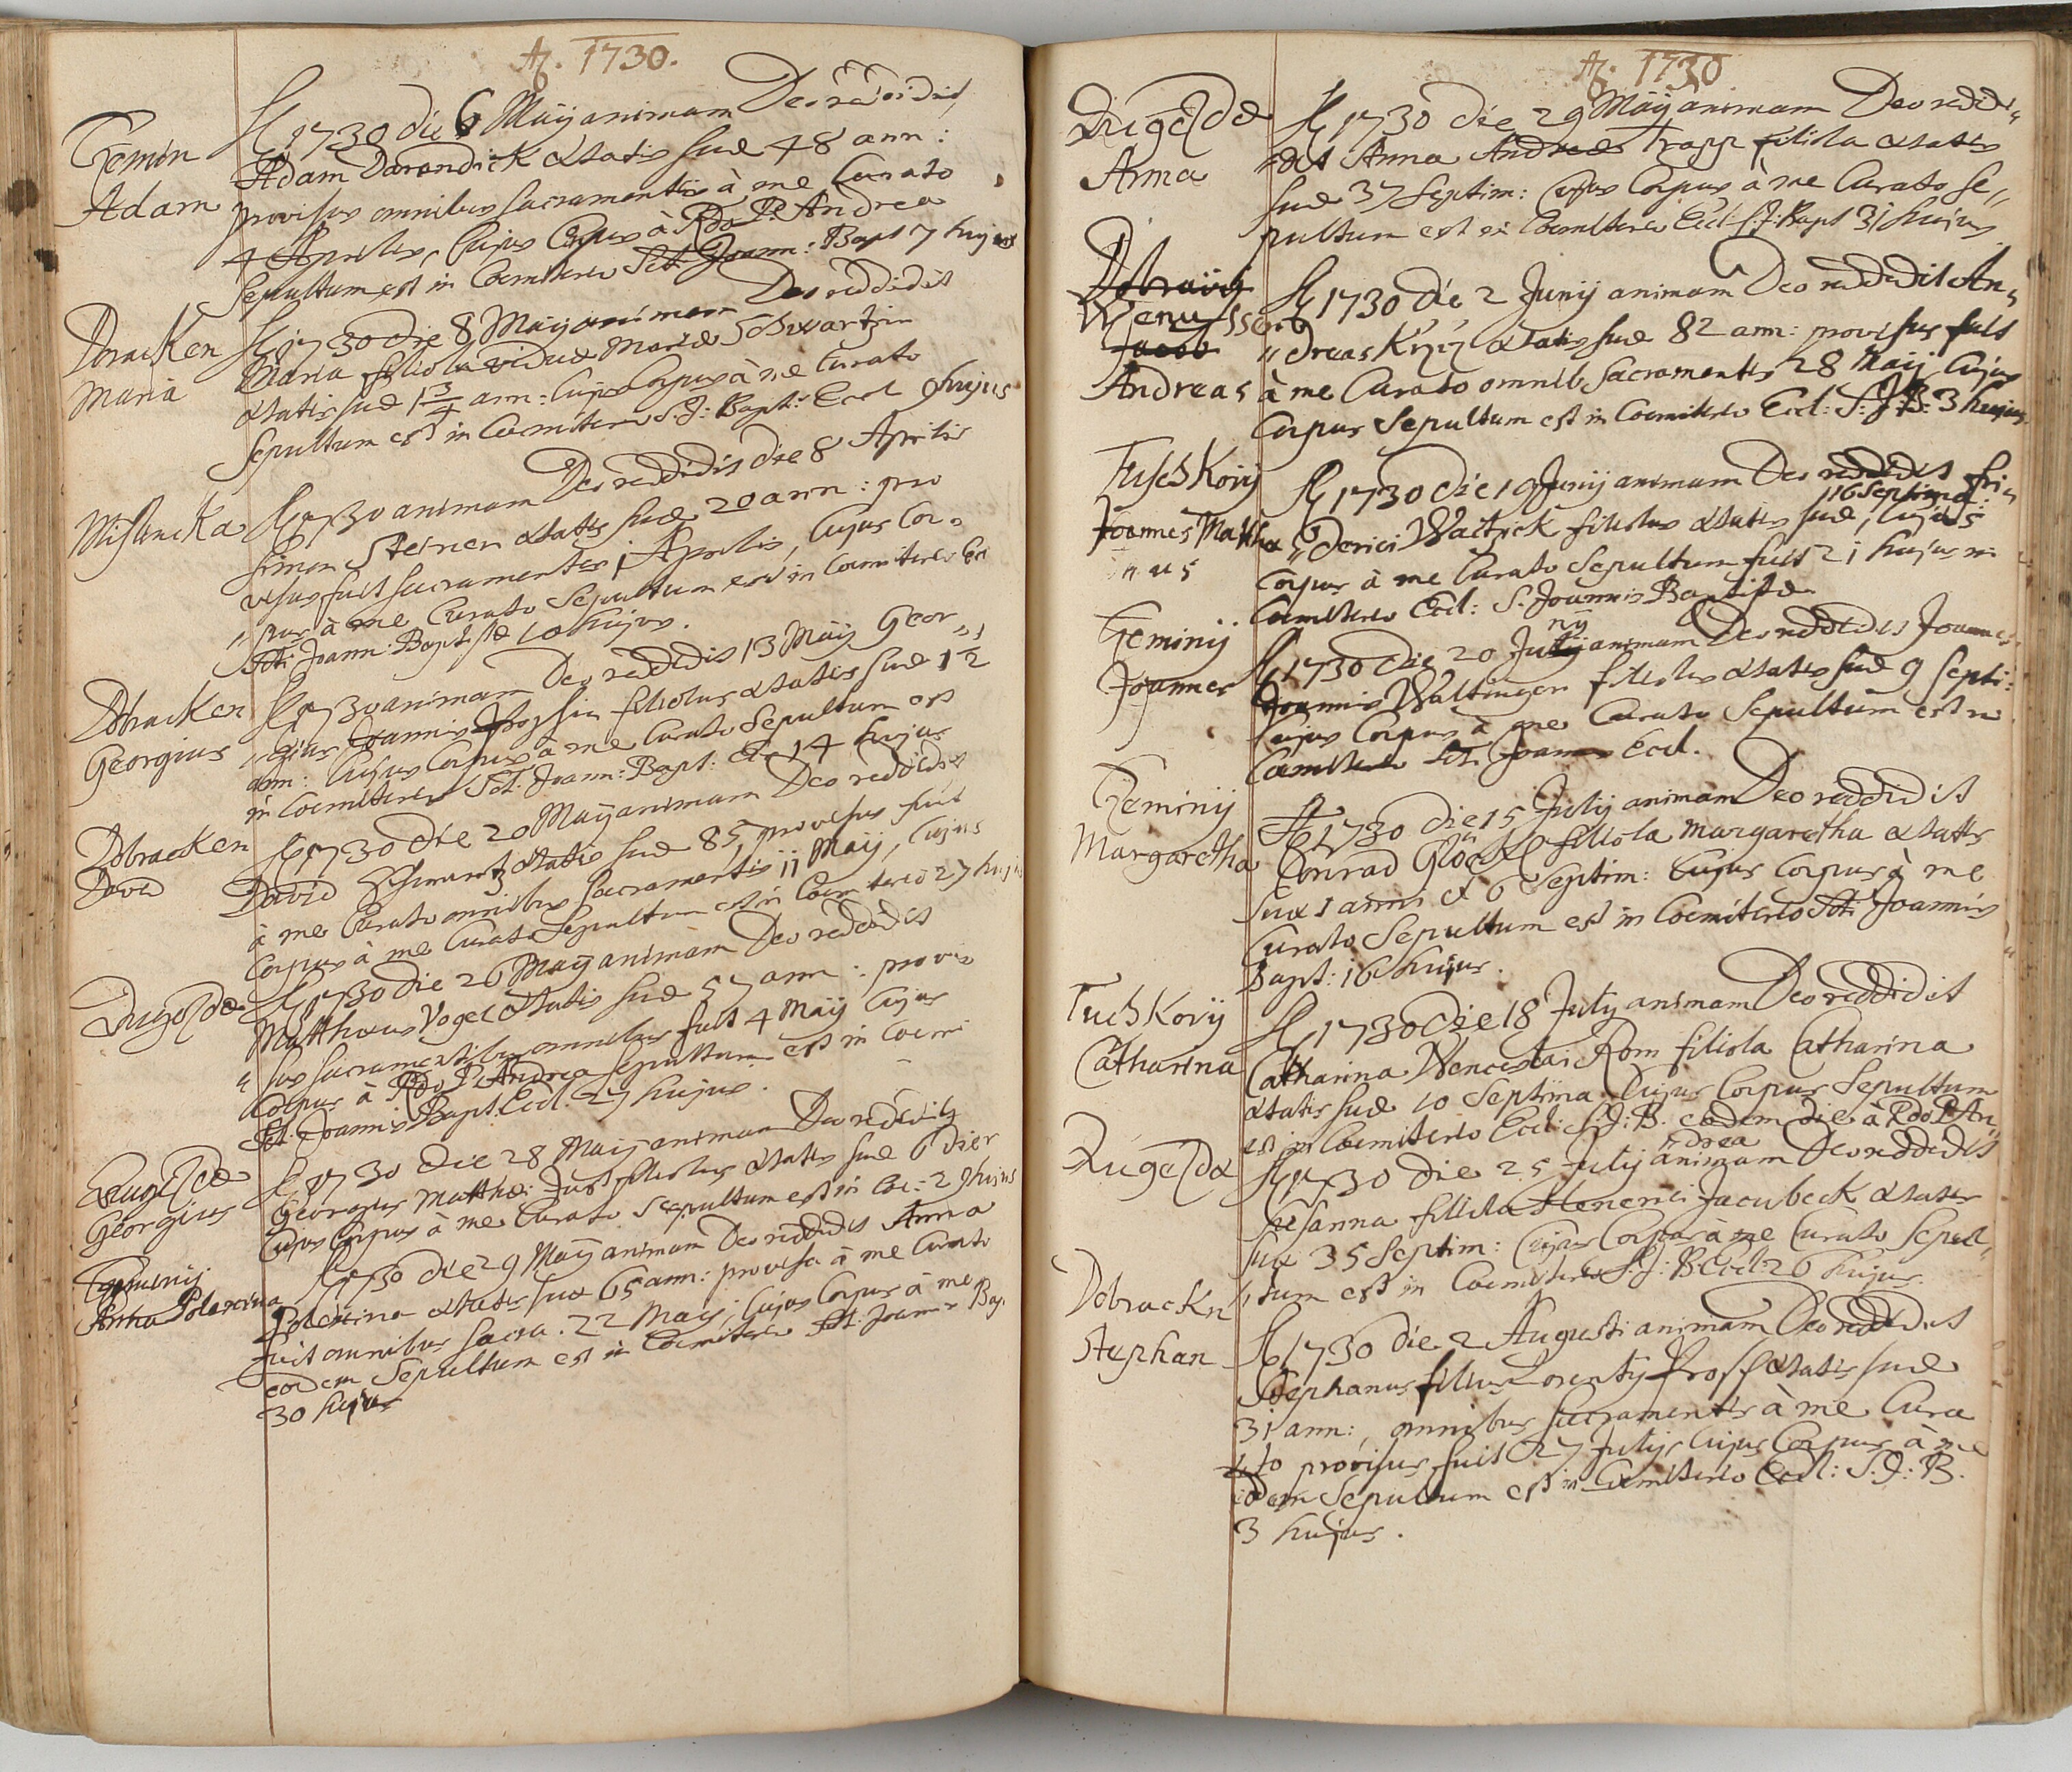 Aõ. 1730.
Gemin
Adam
A 1730 die 6 Maÿ animam Deo reddidit
Adam Darendick ætatis suæ 48 ann:
provisus omnibus sacramentis à me Curato
4 Aprilis, Cujus Corpus à Rdo P. Andrea
Sepultum est in Coemiterio Sct: Joann: Bapt 7 hujus
Dobracken
Maria
A 1730 die 8 Maÿ animam Deo reddidit
Maria filiola viduæ Mariæ Schwartzin
ætatis suæ 1 3/4 ann: Cujus Corpus à me Curato
Sepultum est in Coemiterio S: J: Bapt: Eccl hujus
Mislincka
A 1730 animam Deo reddidit die 8 Aprilis
Simon Steiner ætatis suæ 20 ann: pro
visus fuit sacramentis 1 Aprilis, Cujus Cor=
"pus à me Curato Sepultum est in Coemiterio Ecl
Sct: Joann: Baptistæ 10 hujus.
Dobracken
Georgius
A 1730 animam Deo reddidit 13 Maÿ Geor"
"gius Joannis filiolus ætatis suæ 1 1/2
ann: Cujus Corpus à me Curato Sepultum est
in Coemiterio Sct: Joann: Bapt: die 14 hujus
Dobracken
David
A 1730 die 20 Maÿ animam Deo reddidit
David Schwartz ætatis suæ 85, provisus fuit
à me Curato omnibus Sacramentis 11 Maÿ, Cujus
Corpus à me Curato Sepultum est in Coemiterio 27 hujus
Lugezde
A 1730 die 26 Maÿ animam Deo reddidit
Matthæus Vogel ætatis suæ 57 ann: provi
"sus sacramentibus omnibus fuit 4 Maÿ Cujus
Corpus à Rdo P. Andrea sepultum est in Coemi
Sct: Joannis Bapt. Eccl. 27 hujus.
Augezde
Georgius
A 1730 die 28 Maÿ animam Deo reddidit
Georgius Matthæi Just filiolus ætatis suæ 6 dier
Cujus Corpus à me Curato Sepultum est in Coe: 29 hujus
Geminij
Anna Polexina
A 1730 die 29 Maÿ animam Deo reddidit Anna
Polexina ætatis suæ 65 ann: provisa à me Curato
fuit omnibus sacra. 22 Maÿ; Cujus Corpus à me
eodem Sepultum est in Coemiterio Sct: Joannis Bap.
30 hujus
Aõ. 1730
Augezde
Anna
A 1730 die 29 Maÿ animam Deo reddi"
"dit Anna Andreæ Trapp filiola ætatis
suæ 37 Septim: Cujus Corpus à me Curato Se"
pultum est in Coemiterio Eccl S: J: Bapt 31 hujus
Dobravij
Wenussen
Jacob
Andreas
A 1730 die 2 Junij animam Deo reddidit An"
"dreas ætatis suæ 82 ann: provisus fuit
à me Curato omnib. Sacramentis 28 Maij, Cujus
Corpus Sepultum est in Coemiterio Eccl: S: J: B: 3 hujus.
Tuschkovij
Joannes Matthæ
us
A 1730 die 19 Junij animam Deo reddidit Fri"
"derici Waitzick filiolus ætatis suæ 16 Septima:, Cujus
Corpus à me Curato Sepultum fuit 21 hujus in
Coemiterio Eccl: S. Joannis Baptistæ
Geminij
Joannes
A 1730 die 20 Junÿ animam Deo reddidit Joannes
Joannis Waltinger filiolus ætatis suæ 9 Septi:
Cujus Corpus à me Curato Sepultum est in
Coemiterio Sct: Joannis Eccl.
Geminij
Margaretha
A 1730 die 15 Julij animam Deo reddidit
Conrad Glöckl filiola Margaretha ætatis
suæ 1 anni et 6 Septim: Cujus Corpus à me
Curato Sepultum est in Coemiterio Sct: Joannis
Bapt: 16 hujus.
Tuchkovij
Catharina
A 1730 die 18 Julij animam Deo reddidit
Catharina Wenceslai Rom filiola Catharina
ætatis suæ 10 Septima Cujus Corpus Sepultum
est in Coemiterio Eccl: S: J: B. eodem die à Rdo P. An"
drea
Augezda
A 1730 die 25 Julij animam Deo reddidit
Susanna filiola Henerici Jacubeck ætatis
suæ 35 Septim: Cujus Corpus à me Curato Sepul"
"tum est in Coemiterio S: J: B Eccl: 26 hujus.
Dobrackn
Stephan
A 1730 die 2 Augusti animam Deo reddidit
Stephanus filius Lorentij Frost ætatis suæ
31 ann:, omnibus sacramentis à me Cura
"to provisus fuit 27 Julij, Cujus Corpus à me
eodem Sepultum est in Coemiterio Eccl: S: J: B.
3 hujus.